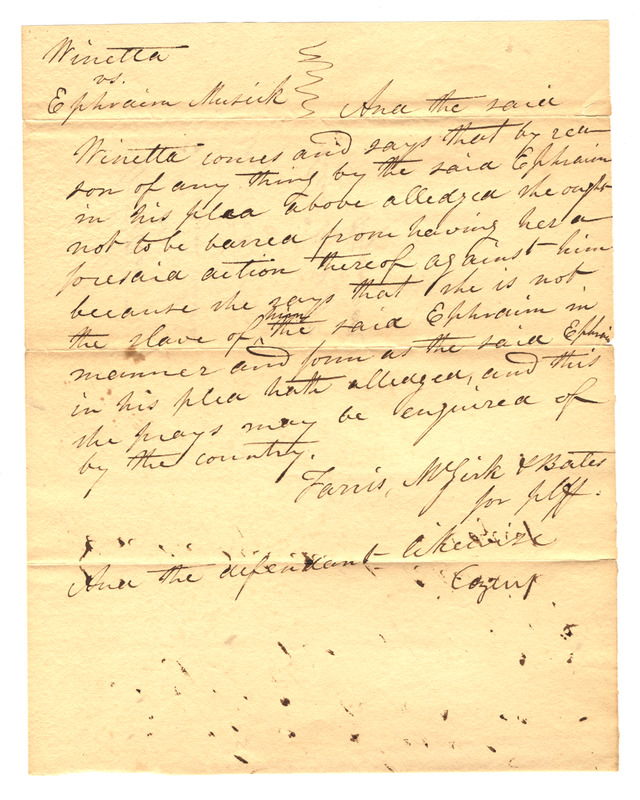 Winetta
vs.
Ephraim Musick And the said
Winetta comes and says that by rea
son of any thing by the said Ephraim
in his plea above alledged she ought
not to be barred from having her a
foresaid action thereof against him
because she says that she is not
the slave of him the said Ephraim in
manner and form as the said Ephraim
in his plea hath alledged, and this
she prays may be enquired of
by the country.
Farris, McGirk & Bates
for plff.
And the defendant likewise